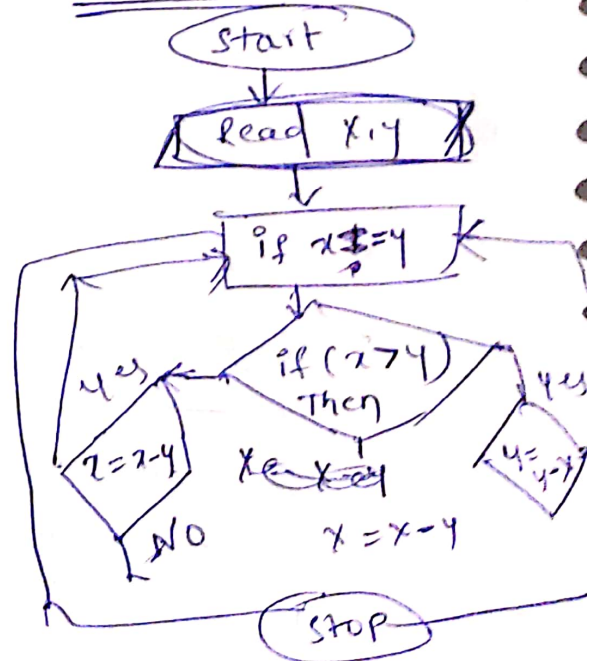 Start
Read x,y
if x!=y
if (x>y)
Then
yes
yes
x=x-y
y=
y-x
NO
x=x-y
STOP